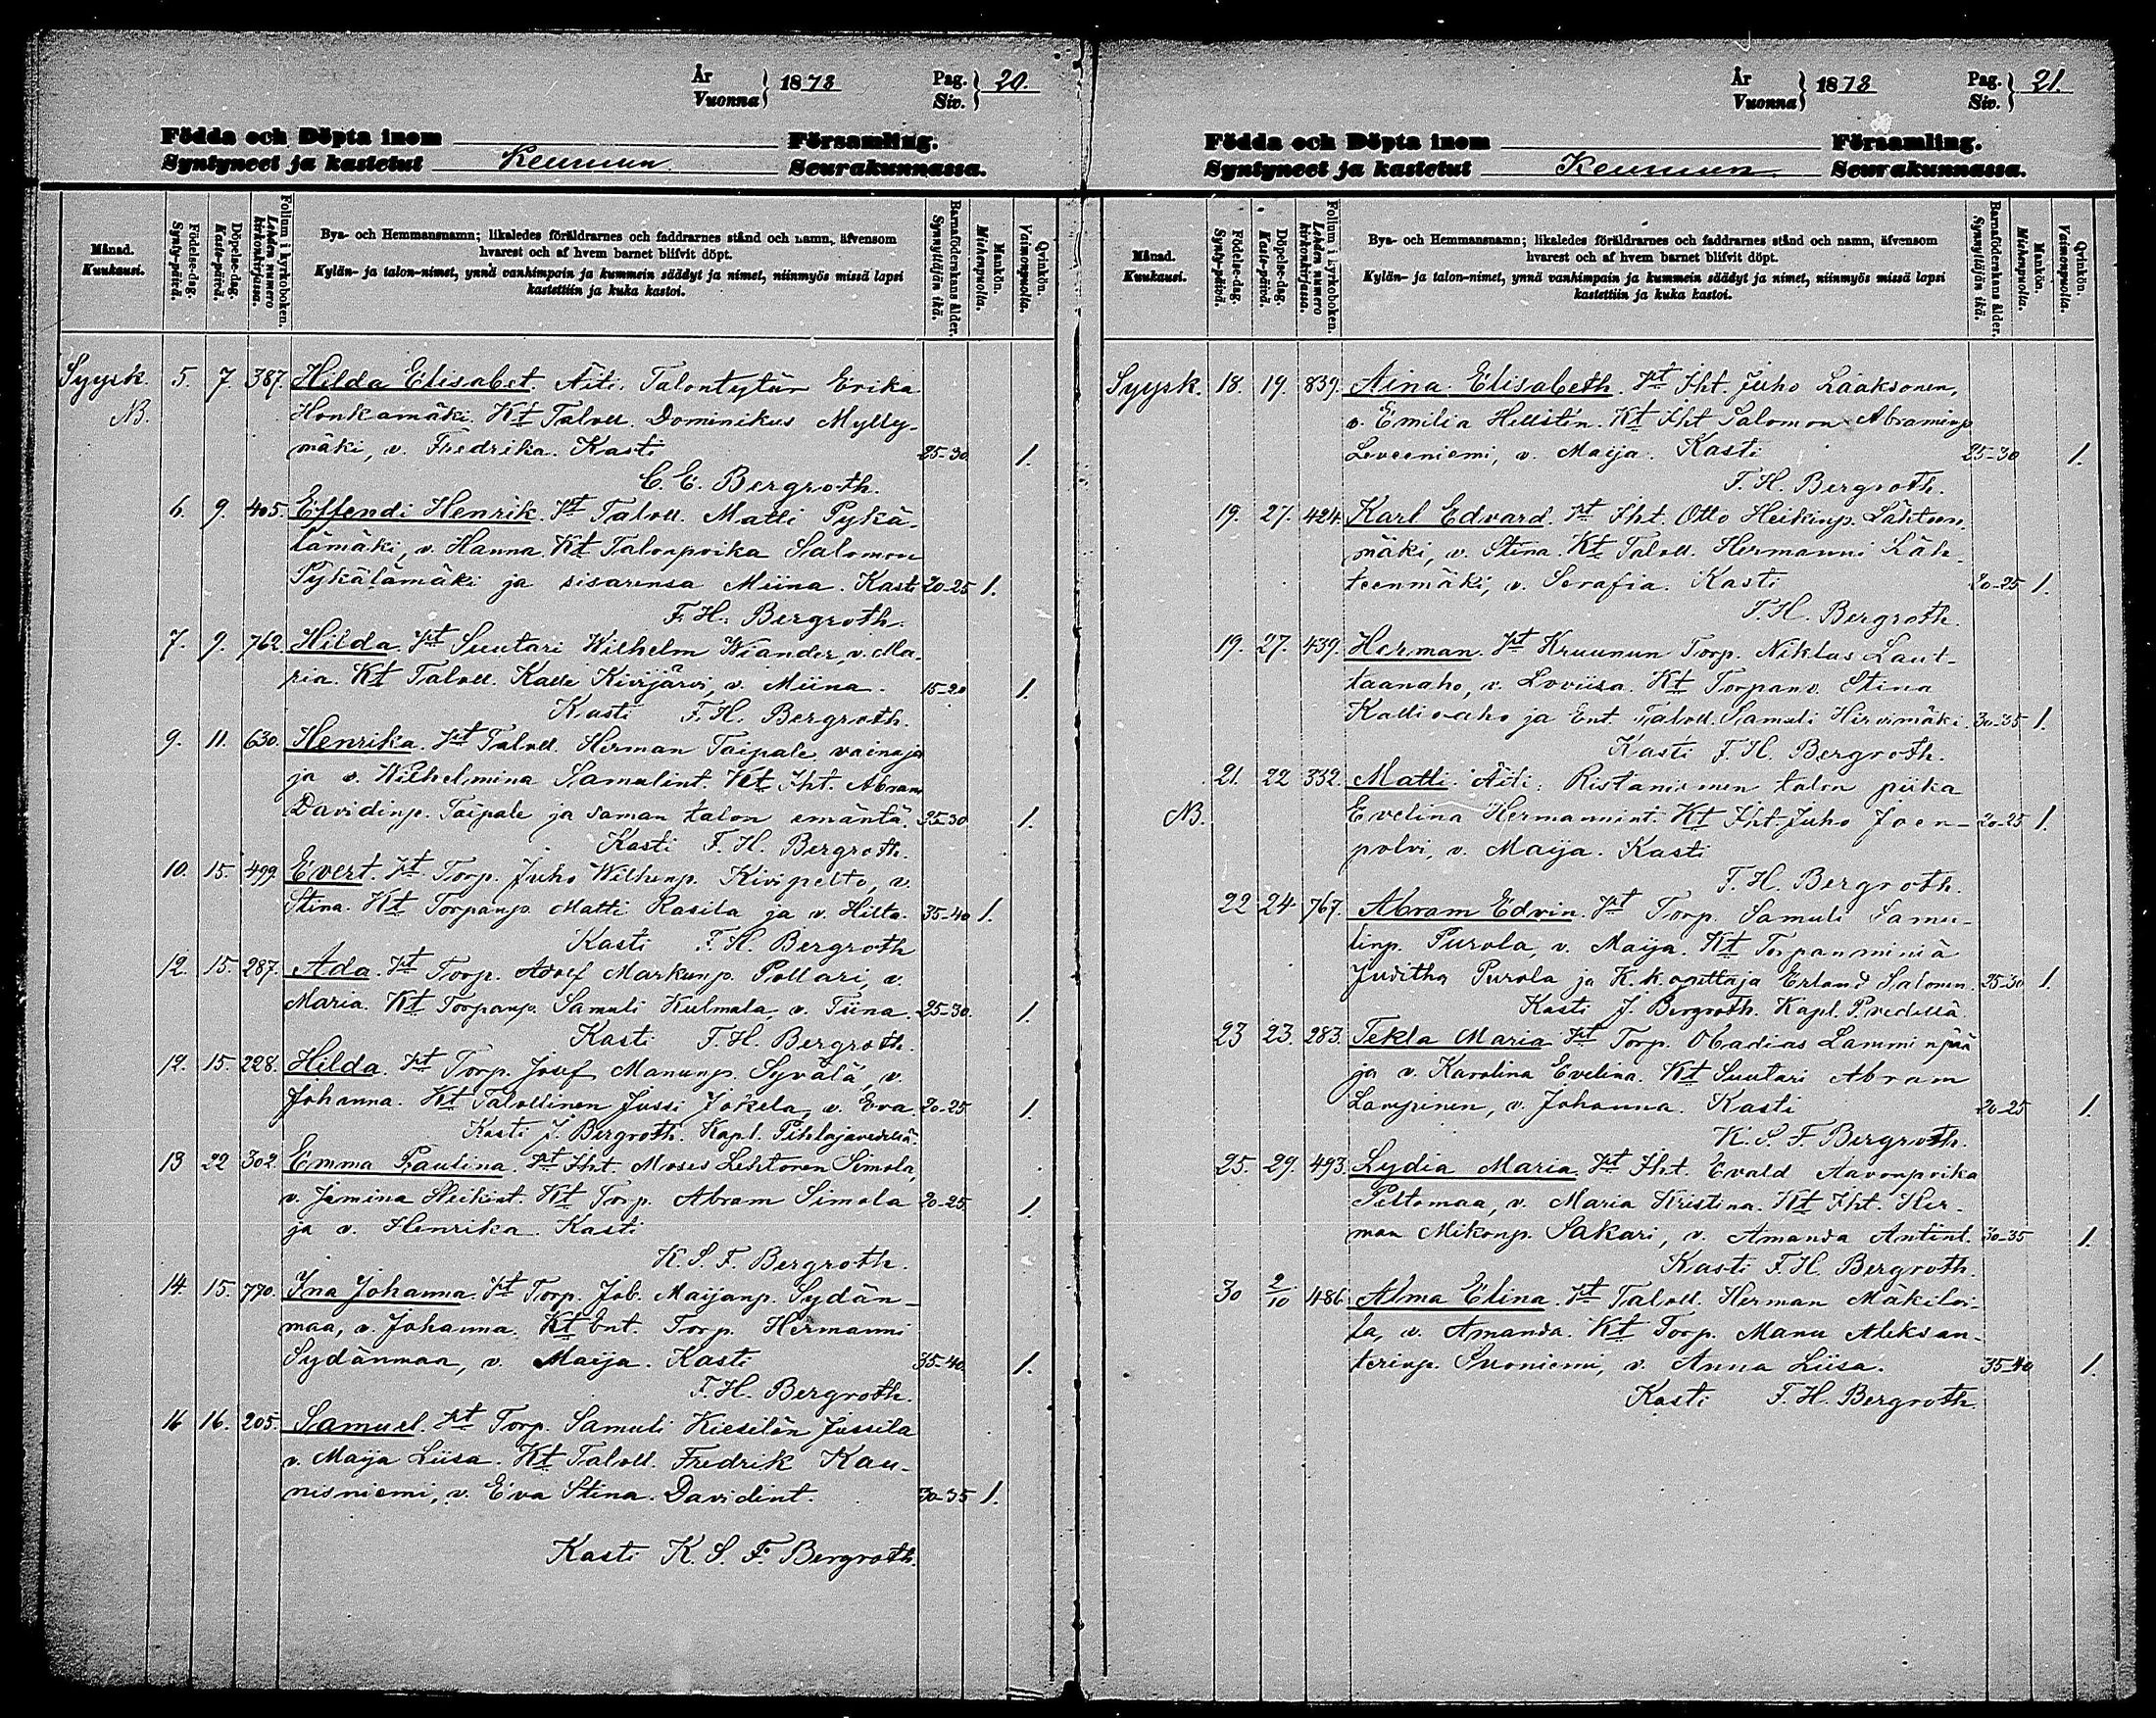 År
Vuonna } 1878 Pag.
Siv. } 20.
Födda och Döpta inom Församling.
Syntyneet ja kastetut Keuruun Seurakunnassa.
Månad.
Kuukausi.
Födelse-dag.
Synty-päivä.
Döpelse-dag.
Kaste-päivä.
Folium i kyrkoboken.
Lehden numero
kirkonkirjassa.
Bya- och Hemmansnamn; likaledes föräldrarnes och faddrarnes stånd och namn, äfvensom
hvarest och af hvem barnet blifvit döpt.
Kylän- ja talon-nimet, ynnä vanhimpain ja kummein säädyt ja nimet, niinmyös missä lapsi
kastettiin ja kuka kastoi.
Barnaföderskans ålder.
Synnyttäjän ikä.
Mankön.
Miehenpuolia.
Qvinkön.
Vaimonpuolia.
Syysk. 5. 7. 387. Hilda Elisabet. Äiti. Talontytär Erika
NB. Honkamäki. Kt Taloll. Dominikus Mylly-
mäki, v. Fredrika. Kasti 25-30 1.
C. E. Bergroth.
6. 9. 405. Effendi Henrik. Vt Taloll. Matti Pykä-
lämäki, v. Hanna. Kt Talonpoika Salomon
Pykälämäki ja sisarensa Miina. Kasti 20-25 1.
F. H. Bergroth.
7. 9. 762. Hilda. Vt Suutari Wilhelm Wiander, v. Ma-
ria. Kt Taloll. Kalle Kivijärvi, v. Miina. 15-20 1.
Kasti F. H. Bergroth.
9. 11. 630. Henrika. Vt Taloll. Herman Taipale vainaja
ja v. Wilhelmina Samulint. Kt Iht. Abram
Davidinp. Taipale ja saman talon emäntä. 25-30 1.
Kasti F. H. Bergroth.
10. 15. 499. Evert. Vt Torp. Juho Wilhenp. Kivipelto, v.
Stina. Kt Torpanp. Matti Rasila ja v. Hilta. 35-40 1.
Kasti F. H. Bergroth
12. 15. 287. Ada. Vt Torp. Adolf Markunp. Pollari, v.
Maria. Kt Torpanp. Samuli Kulmala, v. Tiina. 25-30. 1.
Kasti F. H. Bergroth.
12. 15. 228. Hilda. Vt Torp. Josef Manunp. Syvälä, v.
Johanna. Kt Talollinen Jussi Jokela, v. Eva. 20-25 1.
Kasti J. Bergroth. Kapl. Pihlajavedellä.
13 22 302. Emma Paulina. Vt Iht. Moses Lehtonen Simola,
v. Jemina Heikint. Kt Torp. Abram Simola 20-25 1.
ja v. Henrika. Kasti
K. S. F. Bergroth.
14. 15. 770. Ina Johanna. Vt Torp. Job. Maijanp. Sydän-
maa, v. Johanna. Kt Ent. Torp. Hermanni
Sydänmaa, v. Maija. Kasti 35-40. 1.
F. H. Bergroth.
16 16. 205. Samuel. Vt Torp. Samuli Kiesilän Jussila
v. Maija Liisa. Kt Taloll. Fredrik Kau-
nisniemi, v. Eva Stina. Davidint. 30-35 1.
Kasti K. S. F. Bergroth.
År
Vuonna } 1878 Pag.
Siv. } 21.
Födda och Döpta inom Församling.
Syntyneet ja kastetut Keuruun Seurakunnassa.
Månad.
Kuukausi.
Födelse-dag.
Synty-päivä.
Döpelse-dag.
Kaste-päivä.
Folium i kyrkoboken.
Lehden numero
kirkonkirjassa.
Bya- och Hemmansnamn; likaledes föräldrarnes och faddrarnes stånd och namn, äfvensom
hvarest och af hvem barnet blifvit döpt.
Kylän- ja talon-nimet, ynnä vanhimpain ja kummein säädyt ja nimet, niinmyös missä lapsi
kastettiin ja kuka kastoi.
Barnaföderskans ålder.
Synnyttäjän ikä.
Mankön.
Miehenpuolia.
Qvinkön.
Vaimonpuolia.
Syysk. 18. 19. 839. Aina Elisabeth. Vt Iht Juho Laaksonen,
v. Emilia Hellstén. Kt Iht Salomon Abraminp
Leveeniemi, v. Maija. Kasti 25-30 1.
F. H. Bergroth.
19. 27. 424. Karl Edvard. Vt Iht. Otto Heikinp. Lähteen-
mäki, v. Stina. Kt Taloll. Hermanni Läh-
teenmäki, v. Serafia. Kasti 20-25 1.
F. H. Bergroth.
19. 27. 439. Herman. Vt Kruunun Torp. Niklas Laut-
taanaho, v. Loviisa. Kt Torpanv. Stina
Kallioaho ja Ent. Taloll. Samuli Hirvimäki. 30-35 1.
Kasti F. H. Bergroth.
21. 22 332. Matti. Äiti: Ristaniemen talon piika
NB. Evelina Hermannint. Kt Iht Juho Joen- 20-25 1.
polvi, v. Maija. Kasti
F. H. Bergroth.
22 24. 767. Abram Edvin. Vt Torp. Samuli Samu-
linp. Purola, v. Maija. Kt Torpanminiä
Juditha Purola ja K. k. opettaja Erland Salonen. 25-30 1.
Kasti J. Bergroth. Kapl. P.vedellä.
23 23. 283. Tekla Maria. Vt Torp. Obadias Lamminpää
ja v. Karolina Evelina. Kt Suutari Abram
Lampinen, v. Johanna. Kasti 20-25 1.
K. S. F. Bergroth.
25. 29. 493. Lydia Maria. Vt Iht. Evald Aavonpoika
Peltomaa, v. Maria Kristina. Kt Iht. Her-
man Mikonp. Sakari, v. Amanda Antint. 30-35 1.
Kasti F. H. Bergroth.
30 2/10 486. Alma Elina. Vt Taloll. Herman Mäkiloi-
la, v. Amanda. Kt Torp. Manu Aleksan-
terinp. Suoniemi, v. Anna Liisa. 35-40 1.
Kasti F. H. Bergroth